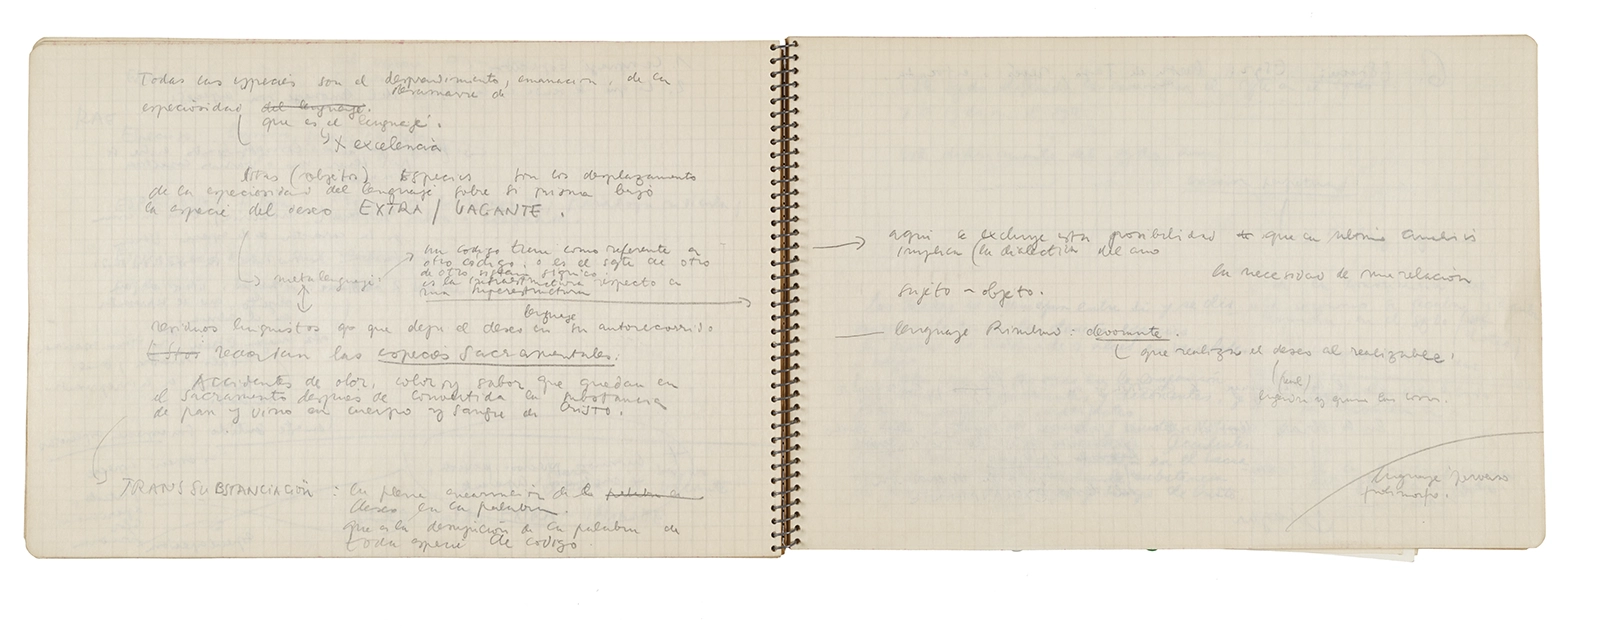 Todas las especies son el desprendimiento, emanación, de la
derramarse de
especiosidad del lenguaje.
que es el lenguaje.
x excelencia
(objetos) Especies son los desplazamento
de la especiosidad del lenguaje sobre si misma bajo
la especie del deseo EXTRA / VAGANTE.
un codigo tiene como referente a
otro código, o es el de otro
de otro, sistema sígnico,
metalenguaje:
es la infraestructura respecto a
una superestructura
lenguaje
residuos que deja el deseo en su autorecorrido
Estos recortan las especies sacramentales:
Accidentes de olor, color y sabor que quedan en
el sacramento despues de convertida la substancia
de pan y vino en cuerpo y sangre de Cristo.
TRANSSUBSTANCIACIÓN: la plena encarnación de
deseo en la palabra.
que es la de la palabra de
toda especie de codigo.
aqui se excluye esta posibilidad que en ultimo analisis
implica (la dialectica del amo
la necesidad de una relación
sujeto - objeto.
lenguaje : devorante.
que realiza el deseo al realizable.
lenguaje perverso
polimorfo.